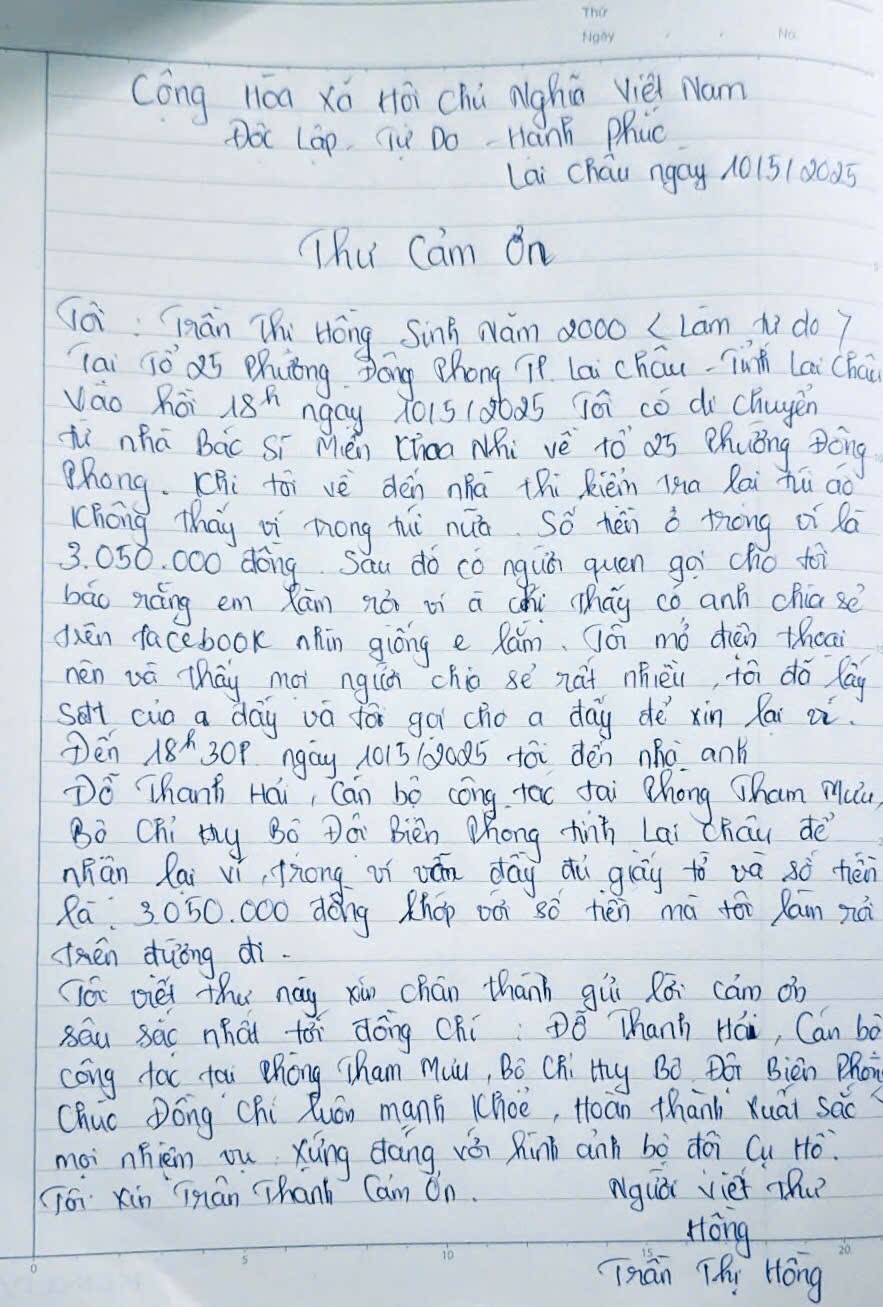 Thứ
Ngày
No.
Cộng Hòa Xã Hội Chủ Nghĩa Việt Nam
Độc Lập - Tự Do - Hạnh Phúc
Lai Châu ngày 10/5/2025
Thư Cảm Ơn
Tôi : Trần Thị Hồng Sinh Năm 2000 < Làm tự do >
Tại Tổ 25 Phường Đông Phong TP. Lai Châu - Tỉnh Lai Châu
Vào hồi 18h ngày 10/5/2025 Tôi có di chuyển
từ nhà Bác Sĩ Miền Khoa Nhi về tổ 25 Phường Đông
Phong. Khi tôi về đến nhà thì kiểm tra lại túi áo
Không thấy ví trong túi nữa. Số tiền ở trong ví là
3.050.000 đồng. Sau đó có người quen gọi cho tôi
báo rằng em làm rơi ví à chị thấy có anh chia sẻ
trên facebook nhìn giống e lắm. Tôi mở điện thoại
nên và thấy mọi người chia sẻ rất nhiều, tôi đã lấy
Sđt của a đấy và tôi gọi cho a đấy để xin lại ví.
Đến 18h30P ngày 10/5/2025 tôi đến nhà anh
Đỗ Thanh Hải, Cán bộ công tác tại Phòng Tham Mưu,
Bộ Chỉ Huy Bộ Đội Biên Phòng tỉnh Lai Châu để
nhận lại ví, trong ví vẫn đầy đủ giấy tờ và số tiền
là : 3.050.000 đồng khớp với số tiền mà tôi làm rơi
trên đường đi.
Tôi viết thư này xin chân thành gửi lời cảm ơn
sâu sắc nhất tới đồng chí : Đỗ Thanh Hải, Cán bộ
công tác tại Phòng Tham Mưu, Bộ Chỉ Huy Bộ Đội Biên Phòng
Chúc Đồng Chí luôn mạnh Khoẻ, Hoàn thành Xuất sắc
mọi nhiệm vụ. Xứng đáng với hình ảnh bộ đội Cụ Hồ.
Tôi xin Trân Thành Cảm Ơn. Người viết Thư
Hồng
Trần Thị Hồng
0 5 10 15 20